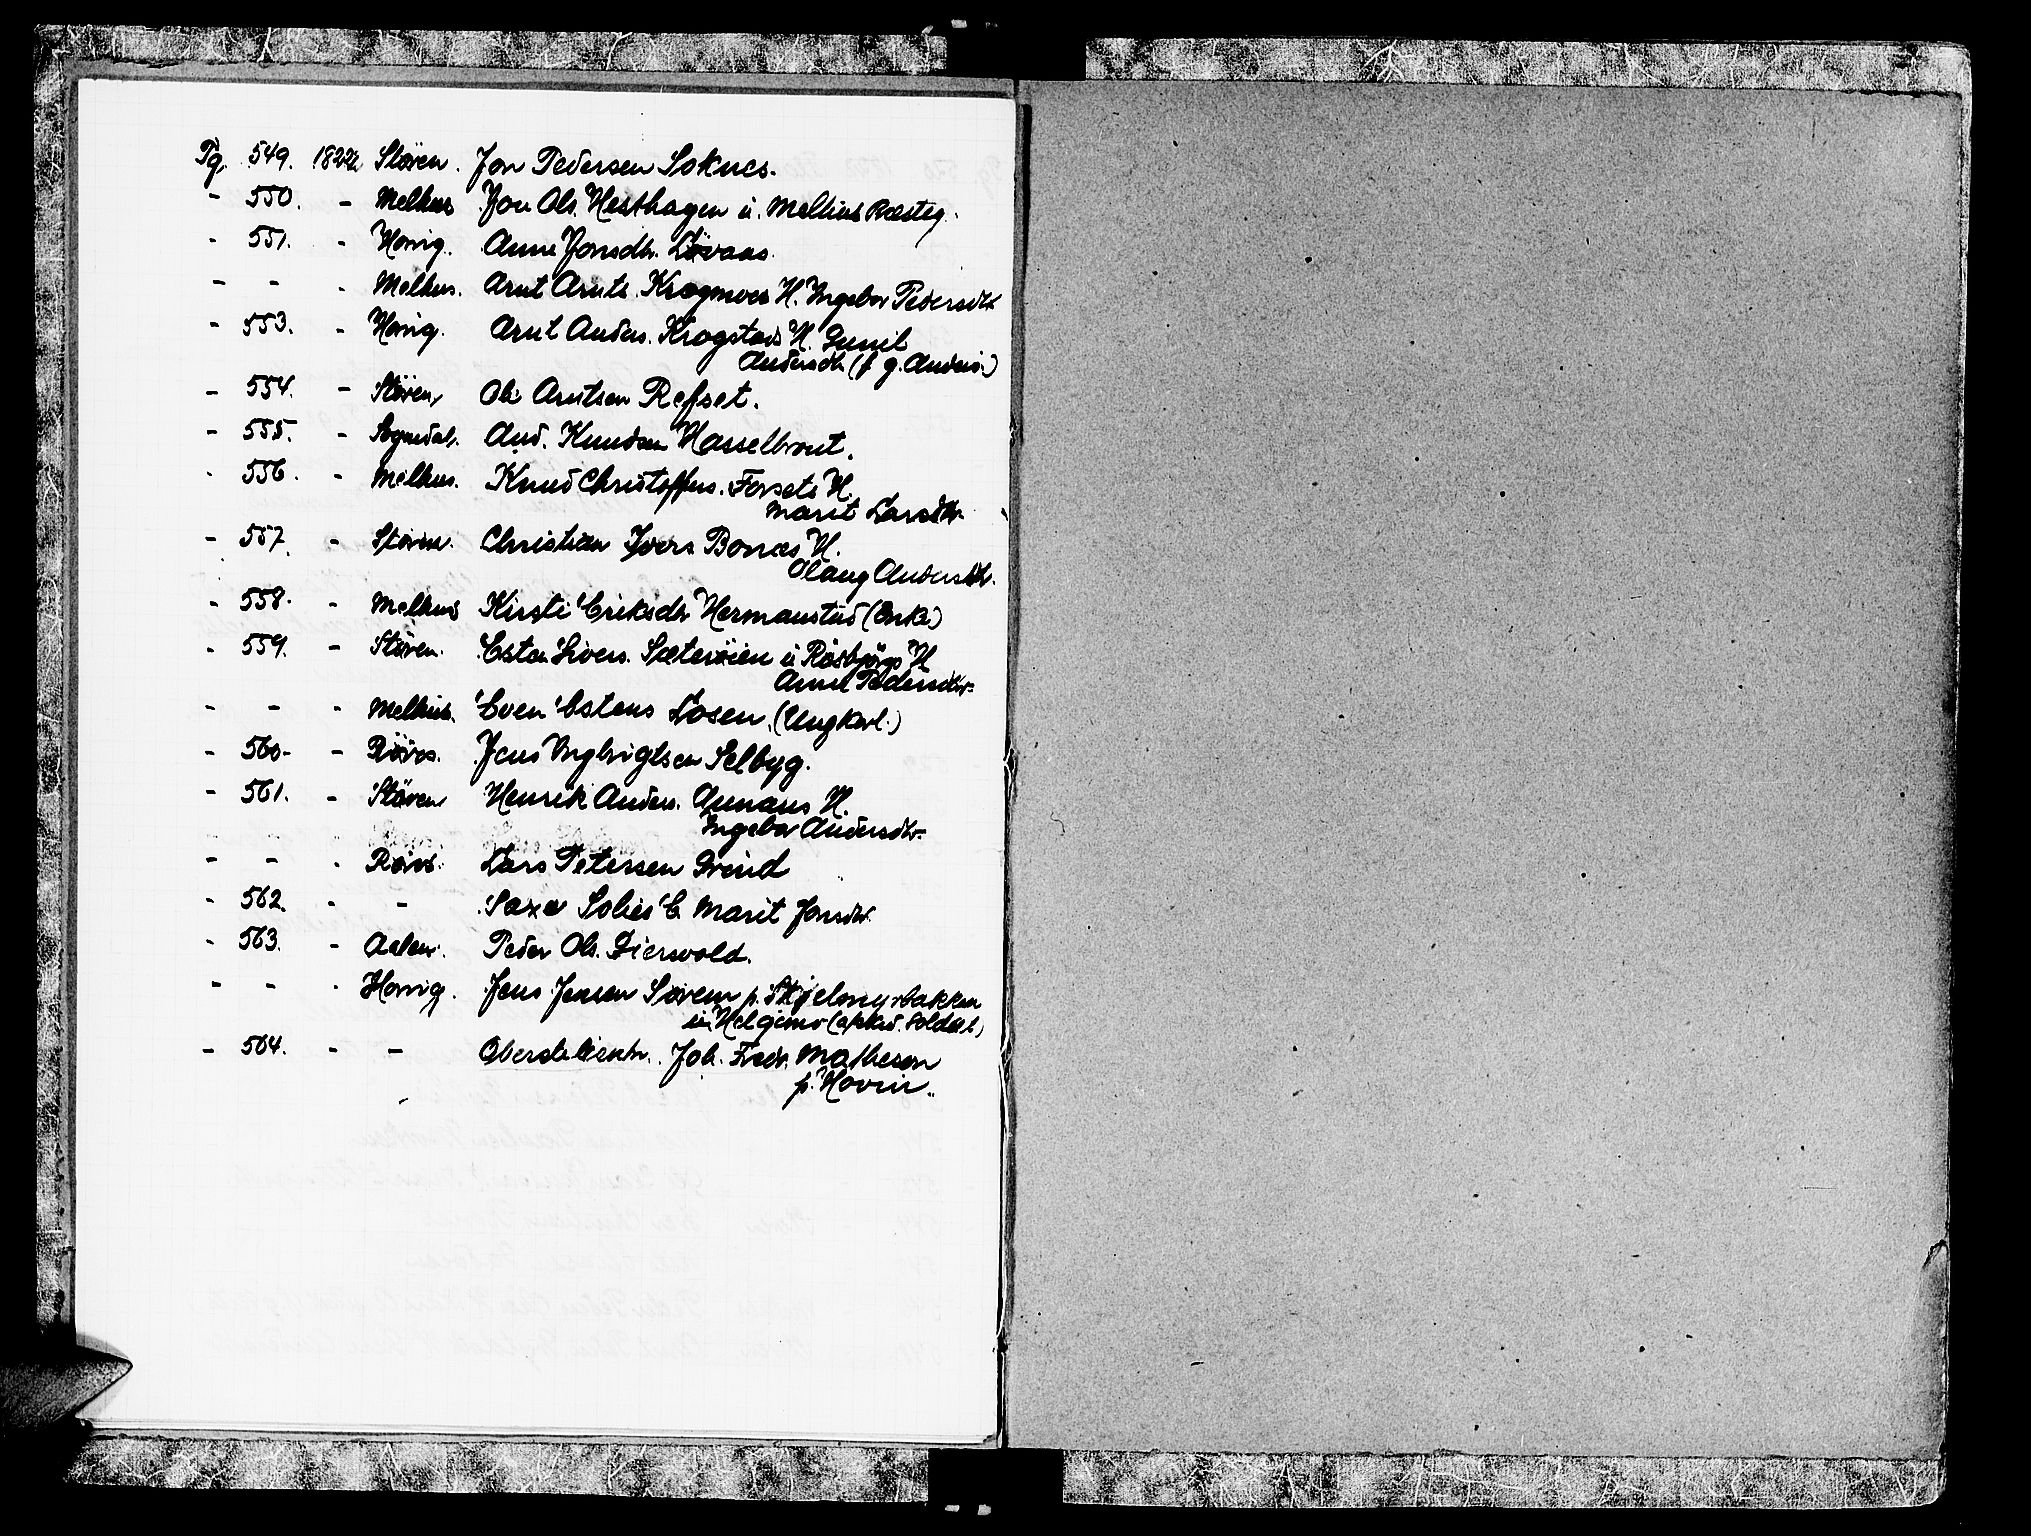 Pg. 549. 1822 Støren. Jon Pedersen Soknes.
- 550. - Melhus Jon Ols. Hesthagen u. Melhus Præsteg.
- 551. - Horrig. Anne Jonsdtr. Løvaas.
- - - Melhus. Arnt Arnts. Kregnæs H. Ingebor Pedersdtr
- 553. - Horrig. Arnt Anders. Krogstad H. Gunil
Andersdtr (f g. Anders.)
- 554. - Støren, Ole Arntsen Refset.
- 555. - Sogndal. And. Knudsen Hasselbrout.
- 556. - Melhus. Knud Christoffers. Forsets H.
Marit Larsdtr.
- 557. - Støren. Christian Ivers Bones H.
Olaug Andersdtr.
- 558. - Melhus Kirsti Eriksdtr Hermanstad (Enke)
- 559. - Støren. Esten Sivers. Sæterøien u Rosbjørgs H
Anne Pedersdtr.
- - - Melhus. Even Estens Losen. (Ungkarl.)
- 560. - Röros. Jens Ingbrigtsen Selbyg.
- 561. - Støren Henrik Anders. Aunans H.
Ingebor Andersdtr.
- - - Røros. Lars Petersen Grind
- 562. - - Saxe Solies E. Marit Jonsdtr.
- 563. - Aalen. Peder Ols. Gierwold.
- - - Horrig. Jens Jensen Sørem p. Skjelmyrbakken
u. Helgemo (afsked. Soldat)
- 564. - - Oberstlieutn. Joh. Fredr. Matheson
p. Hovin.